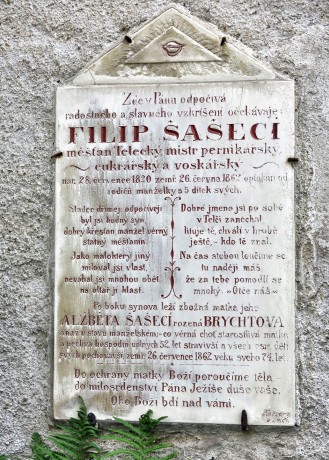 Zde v Pánu odpočívá
radostného a slavného vzkříšení očekávaje
FILIP ŠAŠECÍ
měšťan Telecký, mistr perníkářský
cukrářský a voskářský
nar. 28. července 1820 zemř. 26. června 1867 oplakán od
rodičů, manželky a 5 dítek svých.
Sladce dřímej odpočívej
byl jsi hodný syn
dobrý křesťan manžel věrný
statný měšťanín
Jako málokterý jiný
miloval jsi vlast,
neváhal jsi mnohou oběť
na oltář jí klást.
Dobré jméno jsi po sobě
v Telči zanechal
lituje tě, chválí v hrobě
ještě, - kdo tě znal.
Na čas s tebou loučíme se
tu naději máš
že za tebe pomodlí se
mnohý "Otče náš"
Po boku synova leží zbožná matka jeho
ALŽBĚTA ŠAŠECÍ, rozená BRYCHTOVÁ
v stavu manželském co věrná choť, starostlivá matka
a pečlivá hospodyně 52 let strávivší a všech dětí
svých pochovávší zemř. 26. července 1862 věku svého 74 let.
Do ochrany matky Boží poroučíme těla
do milosrdenství Pána Ježíše duše vaše.
Oko Boží bdí nad vámi.